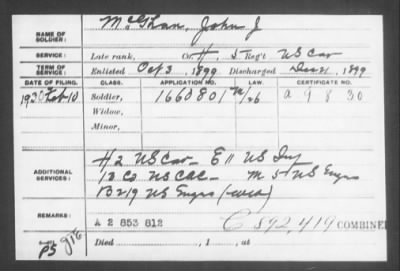 NAME OF SOLDIER: McGhan, John J
SERVICE: Late rank, Co. H, 5 Reg't US Cav
TERM OF SERVICE: Enlisted Oct 3, 1899 Discharged 1899
DATE OF FILING. CLASS. APPLICATION NO. LAW. CERTIFICATE NO.
1930 Feb 10 Soldier, 1660801 A 9 8 30
Widow,
Minor,
ADDITIONAL SERVICES: H 2 US Cav - E 11 US Inf
12 Co US CAC - M 5 US Engrs
B 219 US Engrs (WWI)
REMARKS: A 2 853 812 C 592,419 COMBINED
Died , 1 , at